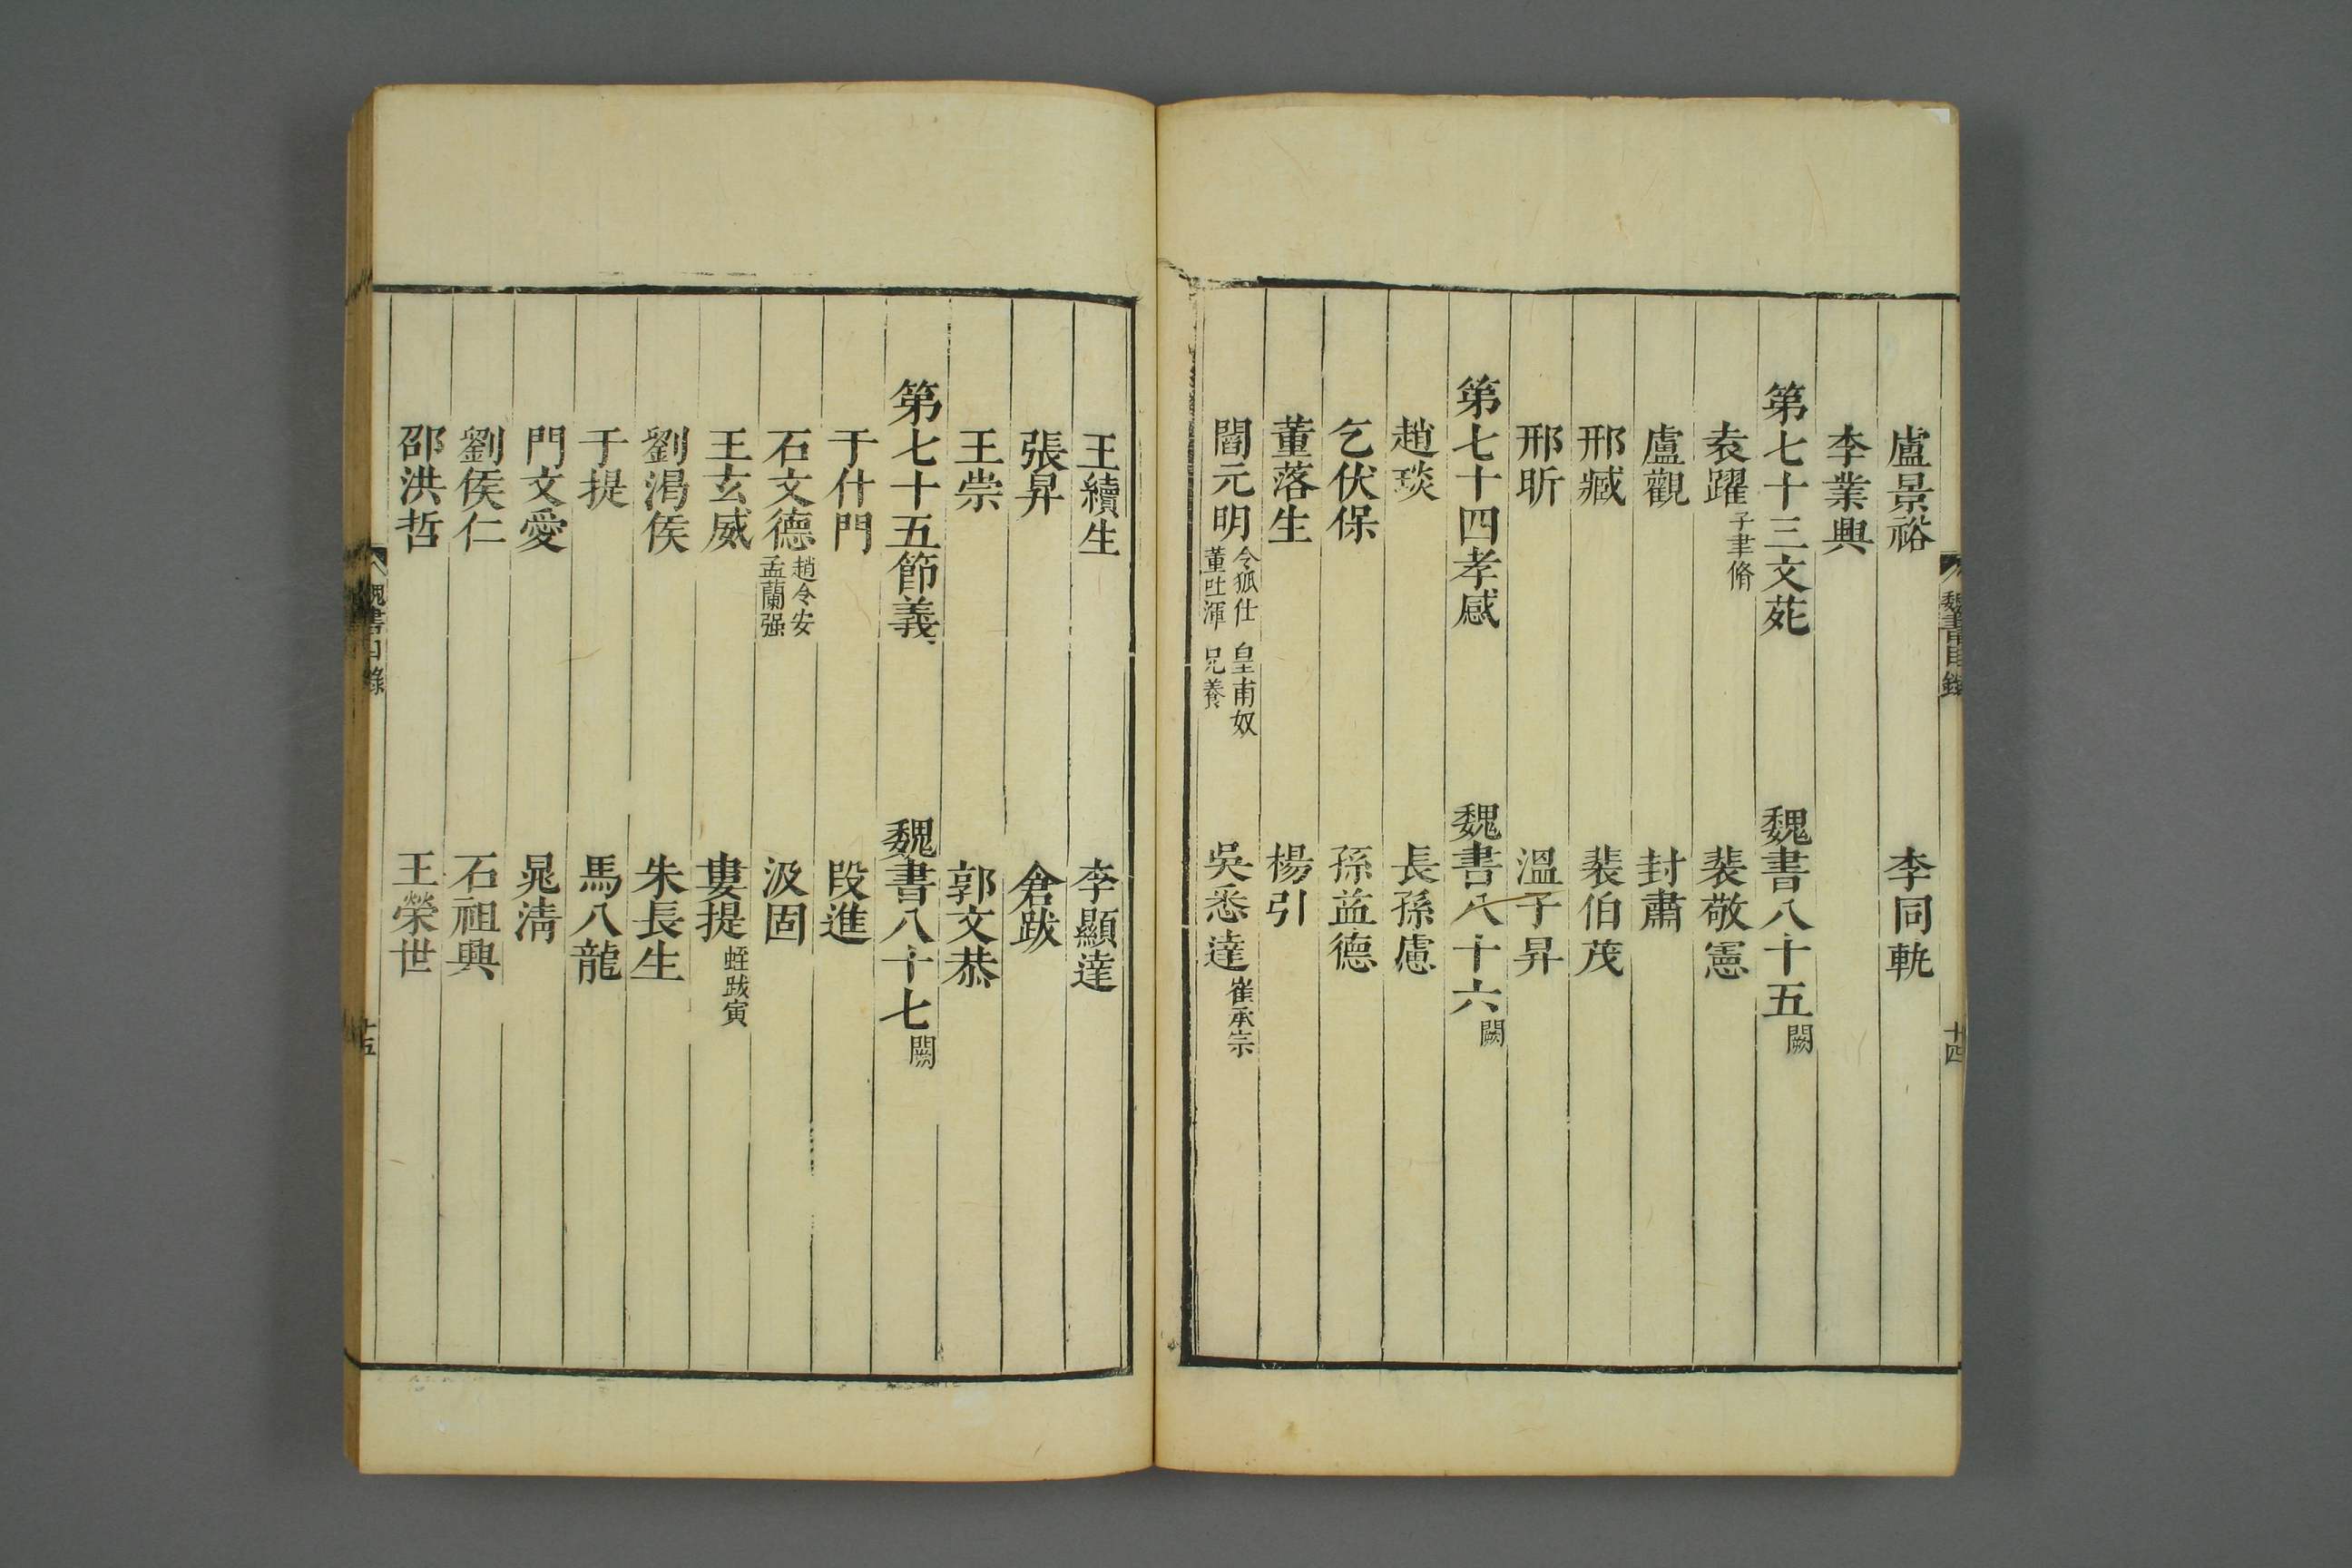 魏書目錄 十四
盧景裕 李同軌
李業興
第七十三文苑 魏書八十五闕
袁躍子聿脩 裴敬憲
盧觀 封肅
邢臧 裴伯茂
邢昕 溫子昇
第七十四孝感 魏書八十六闕
趙琰 長孫慮
乞伏保 孫益德
董落生 楊引
閻元明令狐仕 皇甫奴 董吐渾 兄養 吳悉達崔承宗
王續生 李顯達
張昇 倉跋
王崇 郭文恭
第七十五節義 魏書八十七闕
于什門 段進
石文德趙令安 孟蘭强 汲固
王玄威 婁提蛭跋寅
劉渴侯 朱長生
于提 馬八龍
門文愛 晁淸
劉侯仁 石祖興
邵洪哲 王榮世
魏書目錄 十五